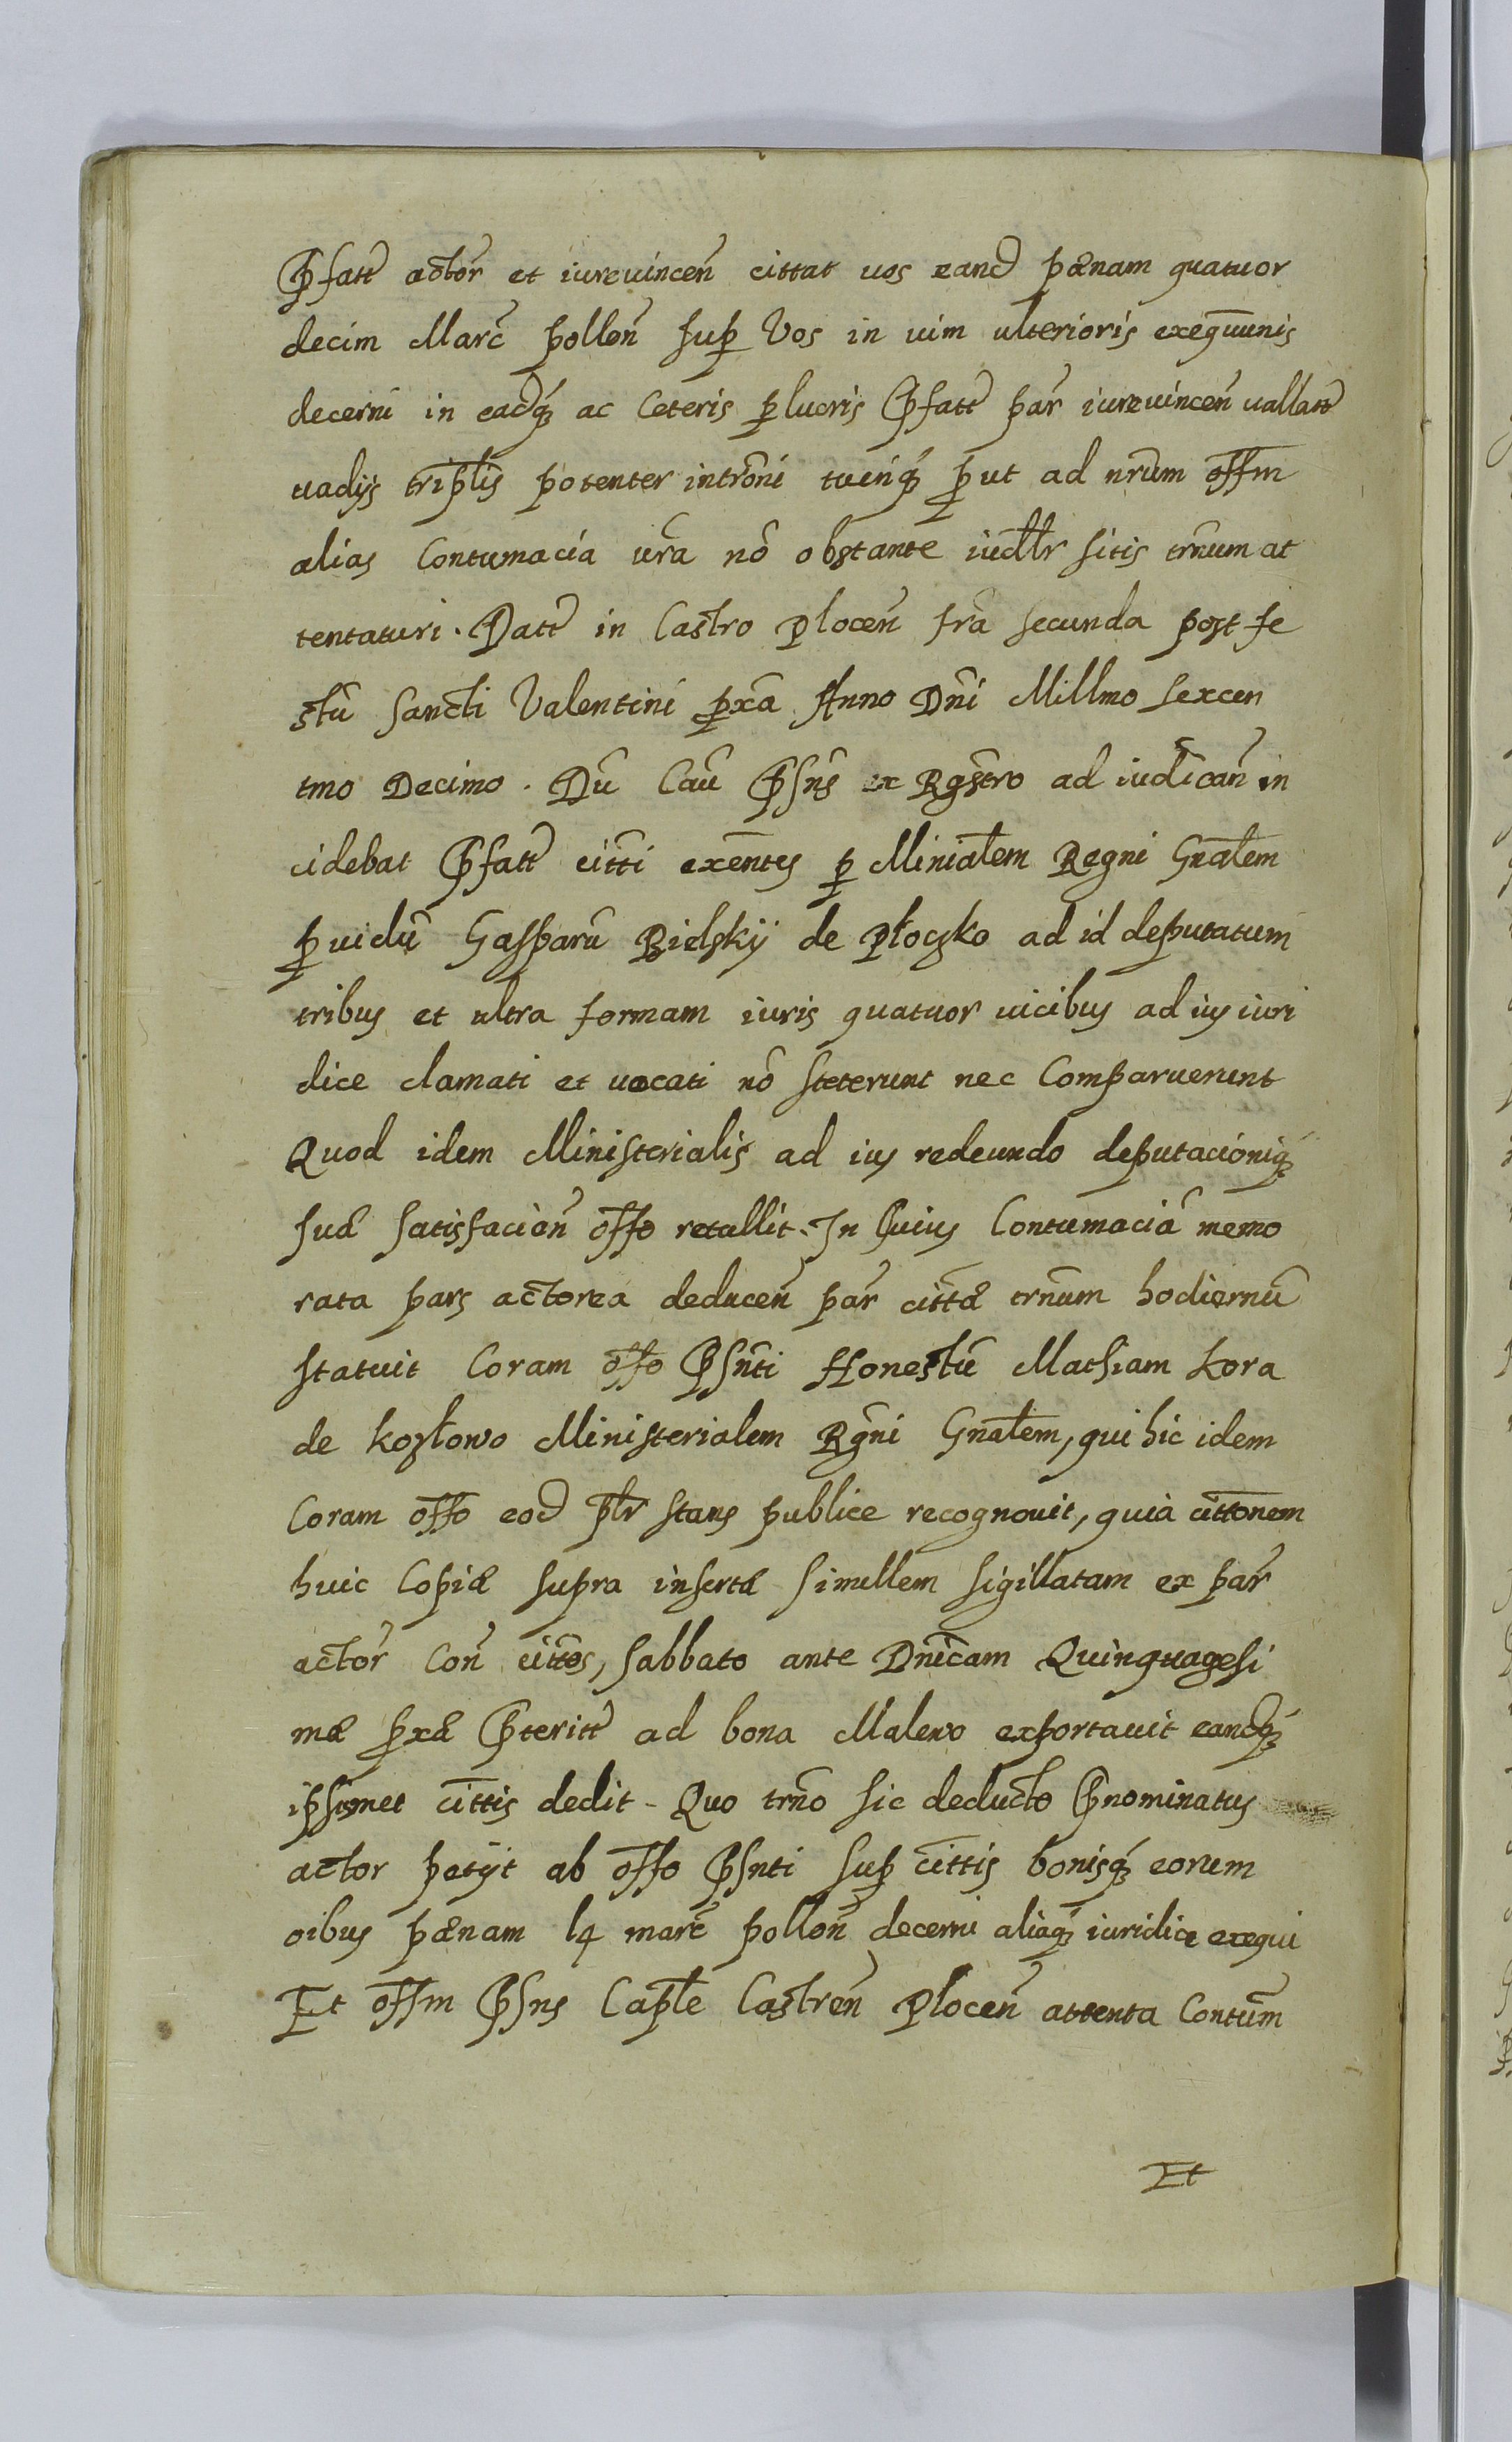 Pfatt actor et iurevincen cittat vos eand pænam quatuor
decim Marc pollon sup Vos in vim ulterioris exeqtiunis
decerni in eadq ac Ceteris plucris Pfatt par iurevincen vallatt
vadijs triplis potenter introni tuèriq put ad nrum offm
alias Contumacia vra nõ obstante iudlr sitis trnum at
tentaturi. Datt in Castro Plocen fra secunda post fe
stũ Sancti Valentini pxa Anno Dni Millmo Sexcen
tmo Decimo. Dũ Caũ Psns ex Rgstro ad iudican in
cidebat Pfatt citti exentes p Minialem Regni Gnalem
pvidũ Gasparũ Bielskij de Płoczko ad id deputatum
tribus et ultra formam iuris quatuor vicibus ad ius iuri
dice clamati et vocati nõ steterunt nec Comparuerunt
Quod idem Ministerialis ad ius redeundo deputacioniq
suæ satisfacian offo retullit. In Cuius Contumaciã memo
rata pars actorea deducen par cittæ trnum hodiernũ
statuit Coram offo Psnti Honestũ Mathiam Kora
de Kozłowo Ministerialem Rgni Gnalem, qui hic idem
Coram offo eod plr stans publice recognovit, quia cittonem
huic Copiæ supra insertæ simillem sigillatam ex par
actor Con cittos, sabbato ante Dnicam Quinquagesi
mæ pxæ Pteritt ad bona Malewo exportavit eandq
ipsismet cittis dedit - Quo trno sic deducto Pnominatus
actor petijt ab offo Psnti sup cittis bonisq eorum
oibus pænam 14 marc pollon decerni aliaq iuridice exequi
Et offm Psns Caple Castren Plocen attenta Contum
Et